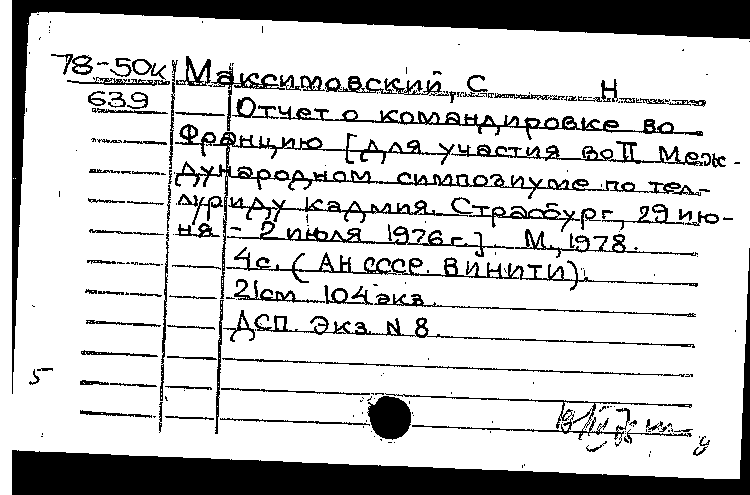 78-50к Максимовский, С Н
639 Отчет о командировке во
Францию [для участия во II Меж-
дународном симпозиуме по тел-
луриду кадмия. Страсбург, 29 ию-
ня - 2 июля 1976 г.]. М., 1978.
4с. (АН СССР. ВИНИТИ).
21см 104 экз.
ДСП. Экз. N 8.
5